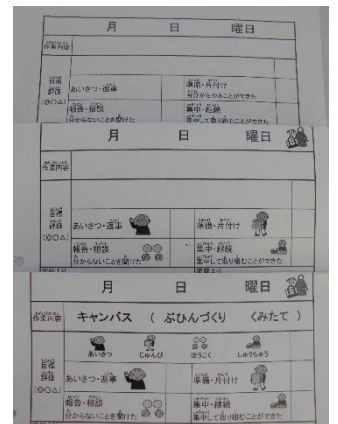 月 日 曜日
作業内容
目標
評価
(◎○△)
あいさつ・返事
準備・片付け
自分からやることができた
報告・相談
分からないことを聞けた
集中・継続
集中して取り組むことができた
月 日 曜日
作業内容
目標
評価
(◎○△)
あいさつ・返事
準備・片付け
報告・相談
分からないことを聞けた
集中・継続
集中して取り組むことができた
月 日 曜日
作業内容
キャンバス ( ぶひんづくり くみたて )
あいさつ じゅんび ほうこく しゅうちゅう
目標
評価
(◎○△)
あいさつ・返事
準備・片付け
報告・相談
分からないことを聞けた
集中・継続
集中して取り組むことができた